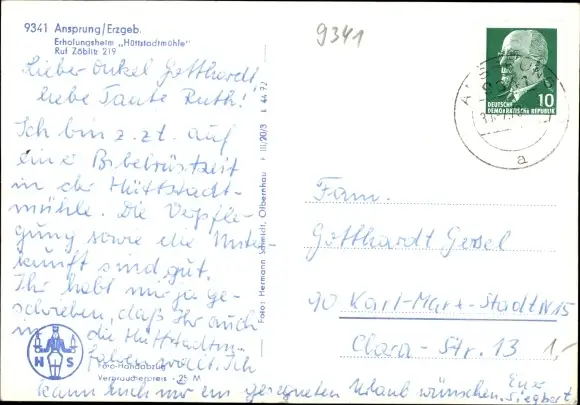 9341 Ansprung/Erzgeb.
Erholungsheim „Hüttstadtmühle"
Ruf Zöblitz 219
9341
Lieber Onkel Gotthardt,
liebe Tante Ruth!
Ich bin z. zt. auf
eine Bibelrüstzeit
in der Hüttstadt-
mühle. Die Verpfle-
gung sowie die Unter-
kunft sind gut.
Ihr habt mir ja ge-
schrieben, daß Ihr auch
die Hüttstadtm.
Ich
kann Euch nur ein gesegneten Urlaub wünschen. Euer
Siegbert
H S
Foto-Handabzug
Verbraucherpreis -,25 M
Foto: Hermann Schmidt, Olbernhau
III/20/3
DEUTSCHE
DEMOKRATISCHE REPUBLIK
10
a
Fam.
Gotthardt Gessel
90 Karl-Marx-Stadt N 15
Clara-Str. 13 1,-